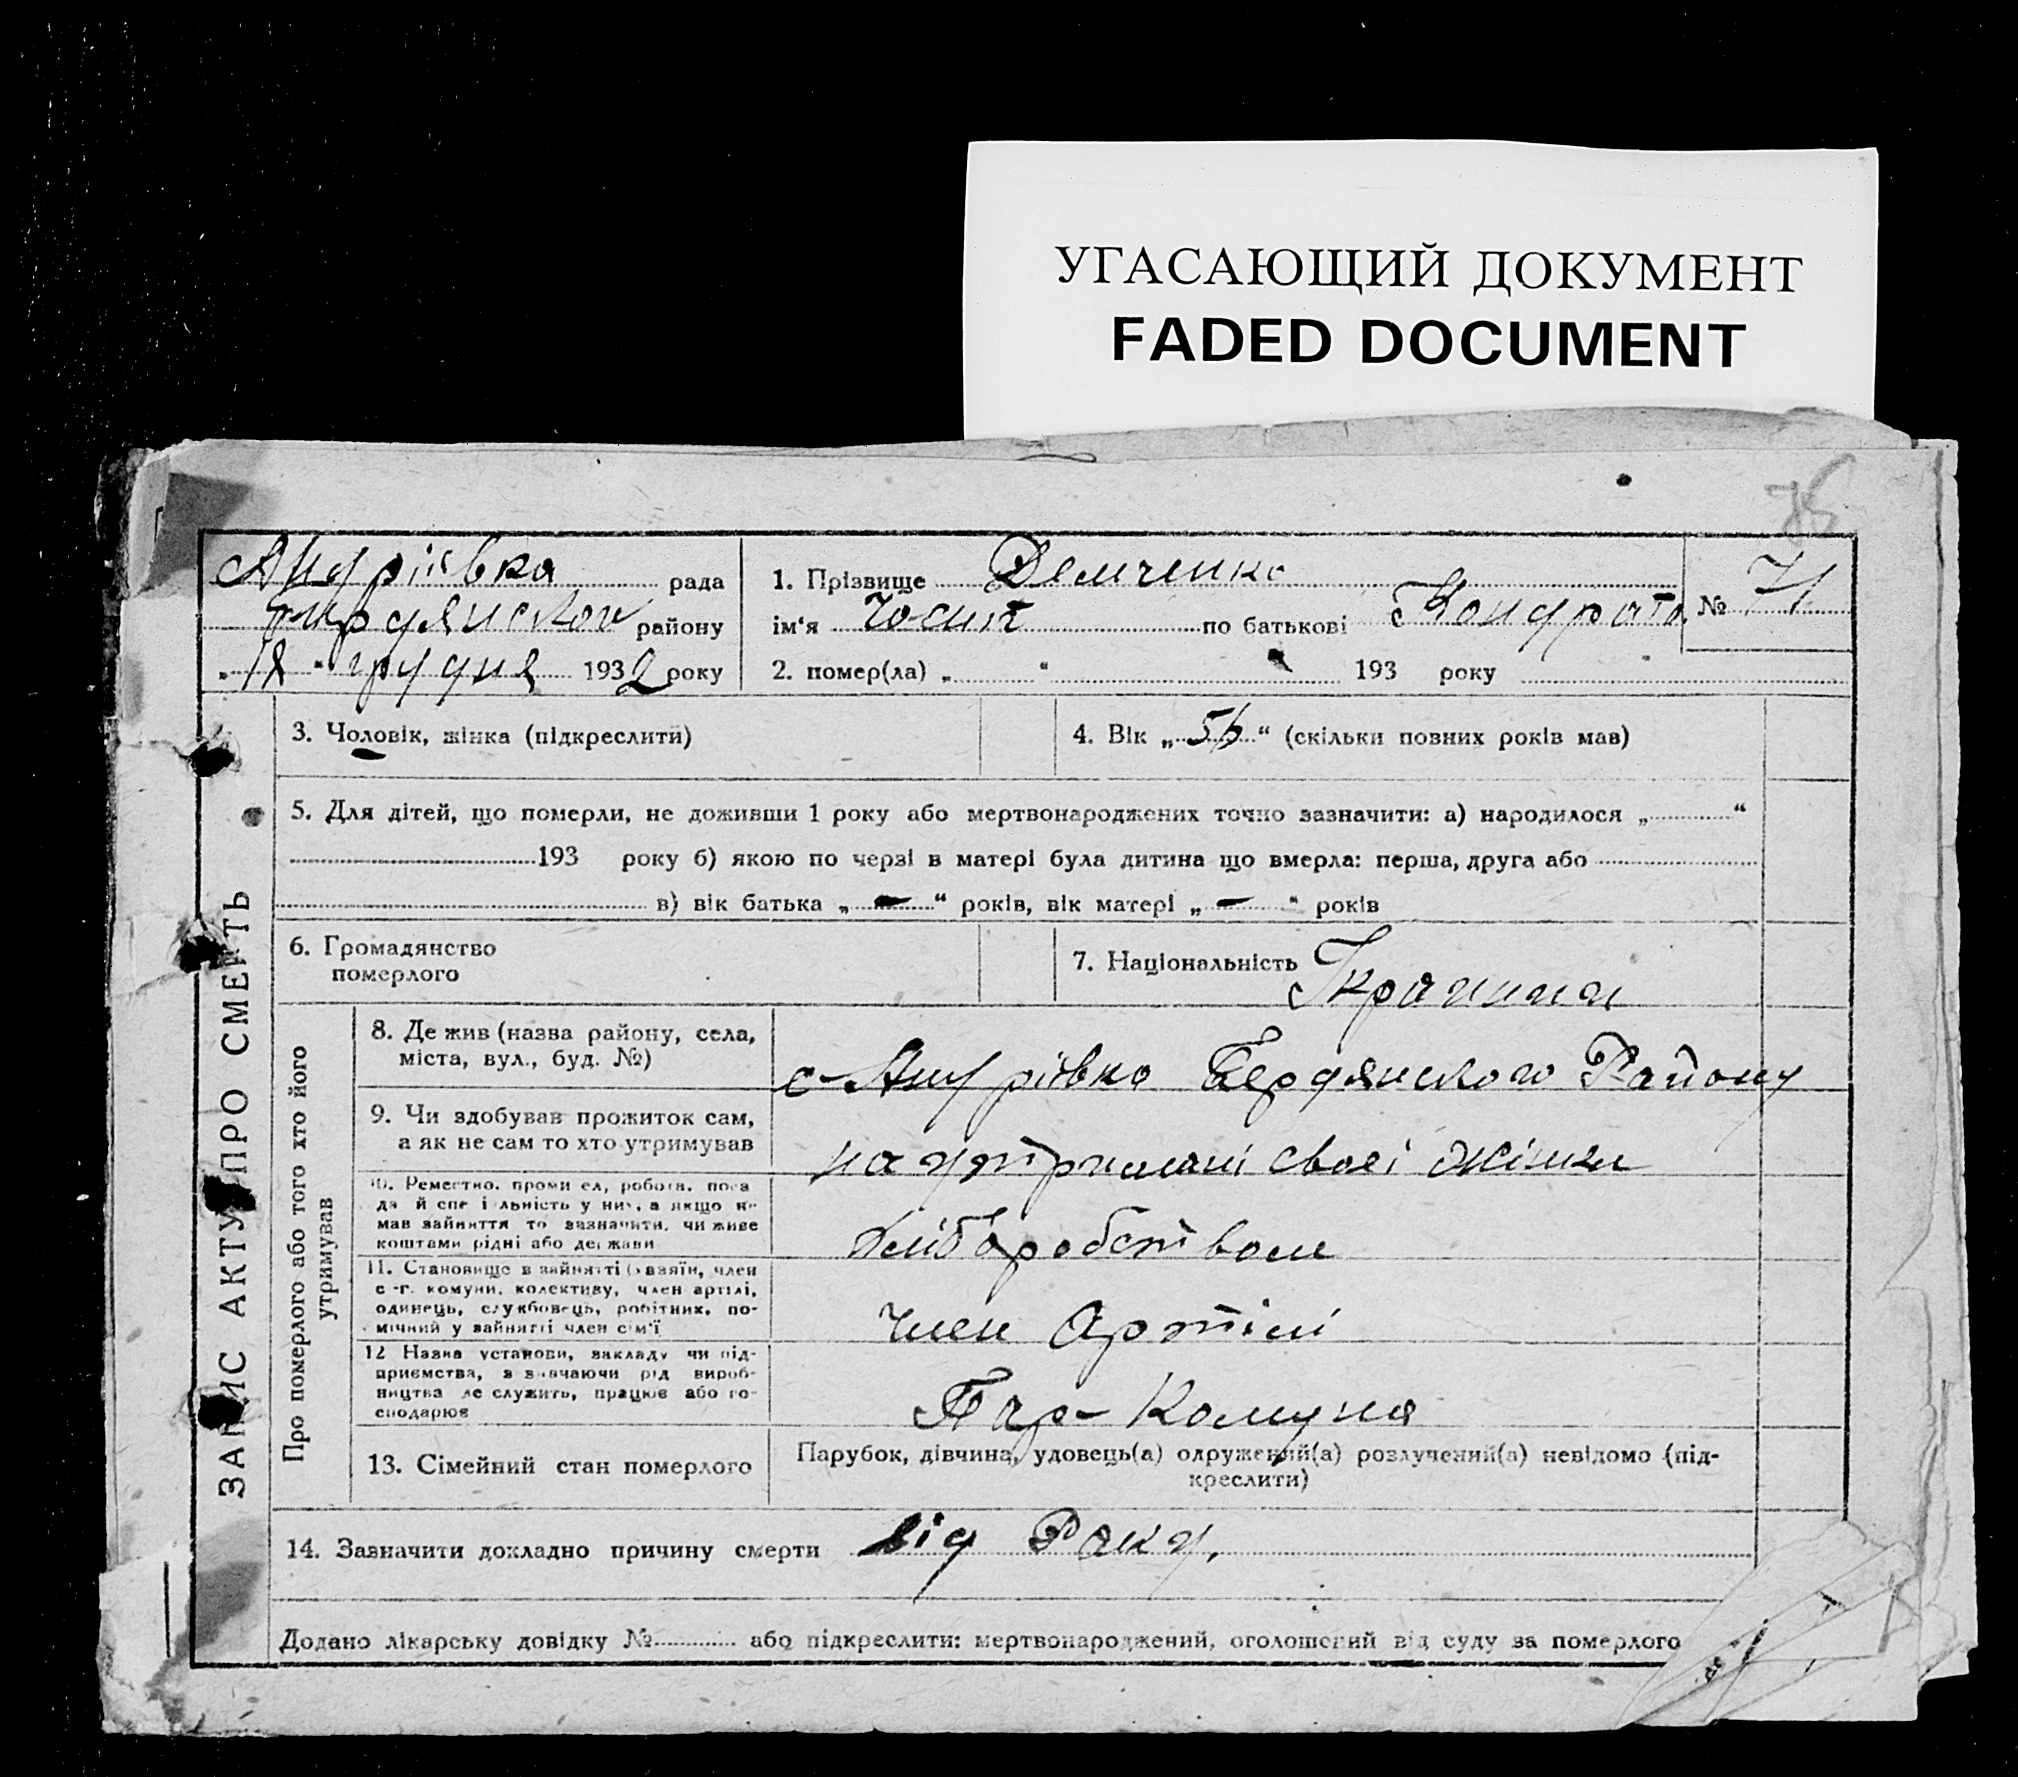 УГАСАЮЩИЙ ДОКУМЕНТ
FADED DOCUMENT
Андрівка рада
району
грудня 1932 року
1. Прізвище Демченко
ім'я по батькові Кондрато.
№ 71
2. помер(ла) „ “ 193 року
ЗАПИС АКТУ ПРО СМЕРТЬ
3. Чоловік, жінка (підкреслити)
4. Вік „ “ (скільки повних років мав)
5. Для дітей, що померли, не доживши 1 року або мертвонароджених точно зазначити: а) народилося „ “
193 року б) якою по черзі в матері була дитина що вмерла: перша, друга або
в) вік батька „ — “ років, вік матері „ — “ років
6. Громадянство
померлого
7. Національність
Про померлого або того хто його
утримував
8. Де жив (назва району, села,
міста, вул., буд. №)
с- Андрівка Бердянского Району
9. Чи здобував прожиток сам,
а як не сам то хто утримував
на утримані своеі жінки
10. Ремество, робота,
мав зайняття то зазначити, чи живе
коштами рідні або держави
хліборобством
11. Становище в зайнятті член
с-г. комуни, колективу, член артілі,
одинець, службовець, робітник, по-
мічний у зайнятті член сім'ї
Член Артілі
12 Назва установи, закладу чи під-
приємства, зазначаючи рід вироб-
ництва де служить, працює або го-
сподарює
Пар- Комуна
13. Сімейний стан померлого
Парубок, дівчина, удовець(а) одружений(а) розлучений(а) невідомо (під-
креслити)
14. Зазначити докладно причину смерти від Раку.
Додано лікарську довідку № або підкреслити: мертвонароджений, оголошений від суду за померлого